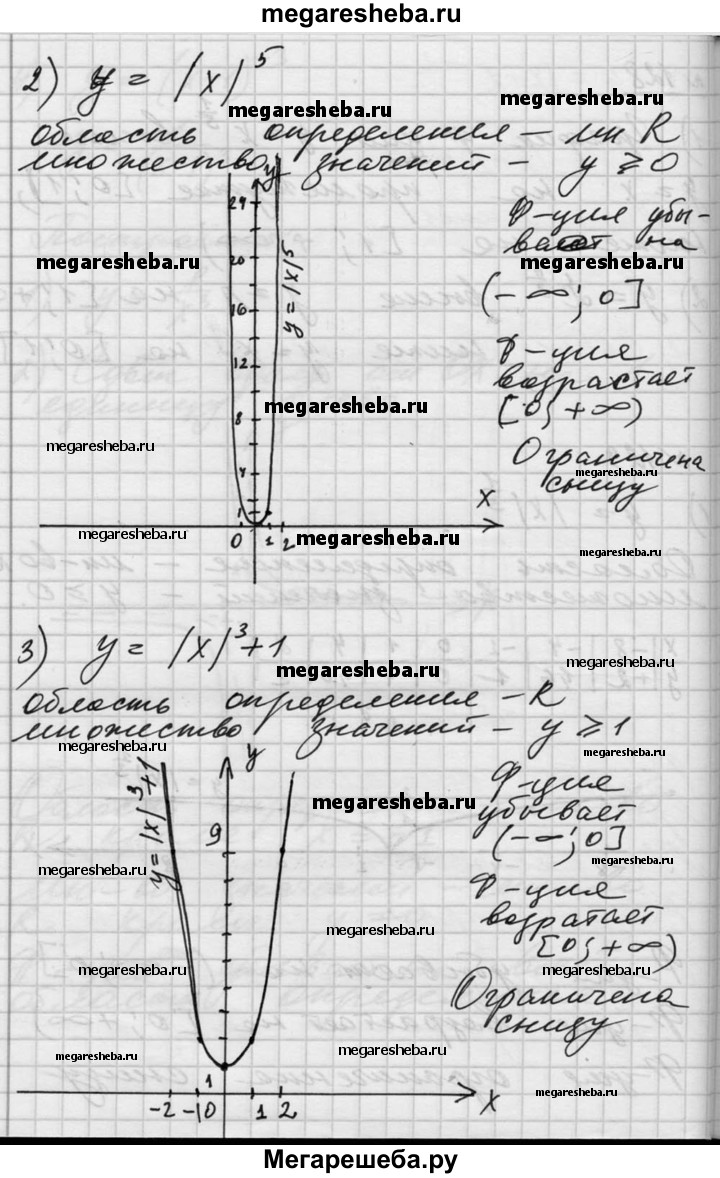 megaresheba.ru
2) y = |x|^5
megaresheba.ru
megaresheba.ru
область определения – мн R
множество значений – y ≥ 0
y
24
20
16
12
8
4
y = |x|^5
Ф-ция убы-
вает на
megaresheba.ru
megaresheba.ru
(-∞; 0]
Ф-ция
возрастает
[0; +∞)
megaresheba.ru
megaresheba.ru
Ограничена
megaresheba.ru
снизу
x
0 1 2
megaresheba.ru
megaresheba.ru
megaresheba.ru
3) y = |x|^3+1
megaresheba.ru
megaresheba.ru
область определения – R
множество значений – y ≥ 1
megaresheba.ru
megaresheba.ru
y
y = |x|^3+1
9
Ф-ция
убывает
(-∞; 0]
megaresheba.ru
megaresheba.ru
megaresheba.ru
Ф-ция
возратает
[0; +∞)
megaresheba.ru
megaresheba.ru
megaresheba.ru
Ограничена
снизу
megaresheba.ru
megaresheba.ru
megaresheba.ru
1
-2 -1 0 1 2 x
Мегарешеба.ру